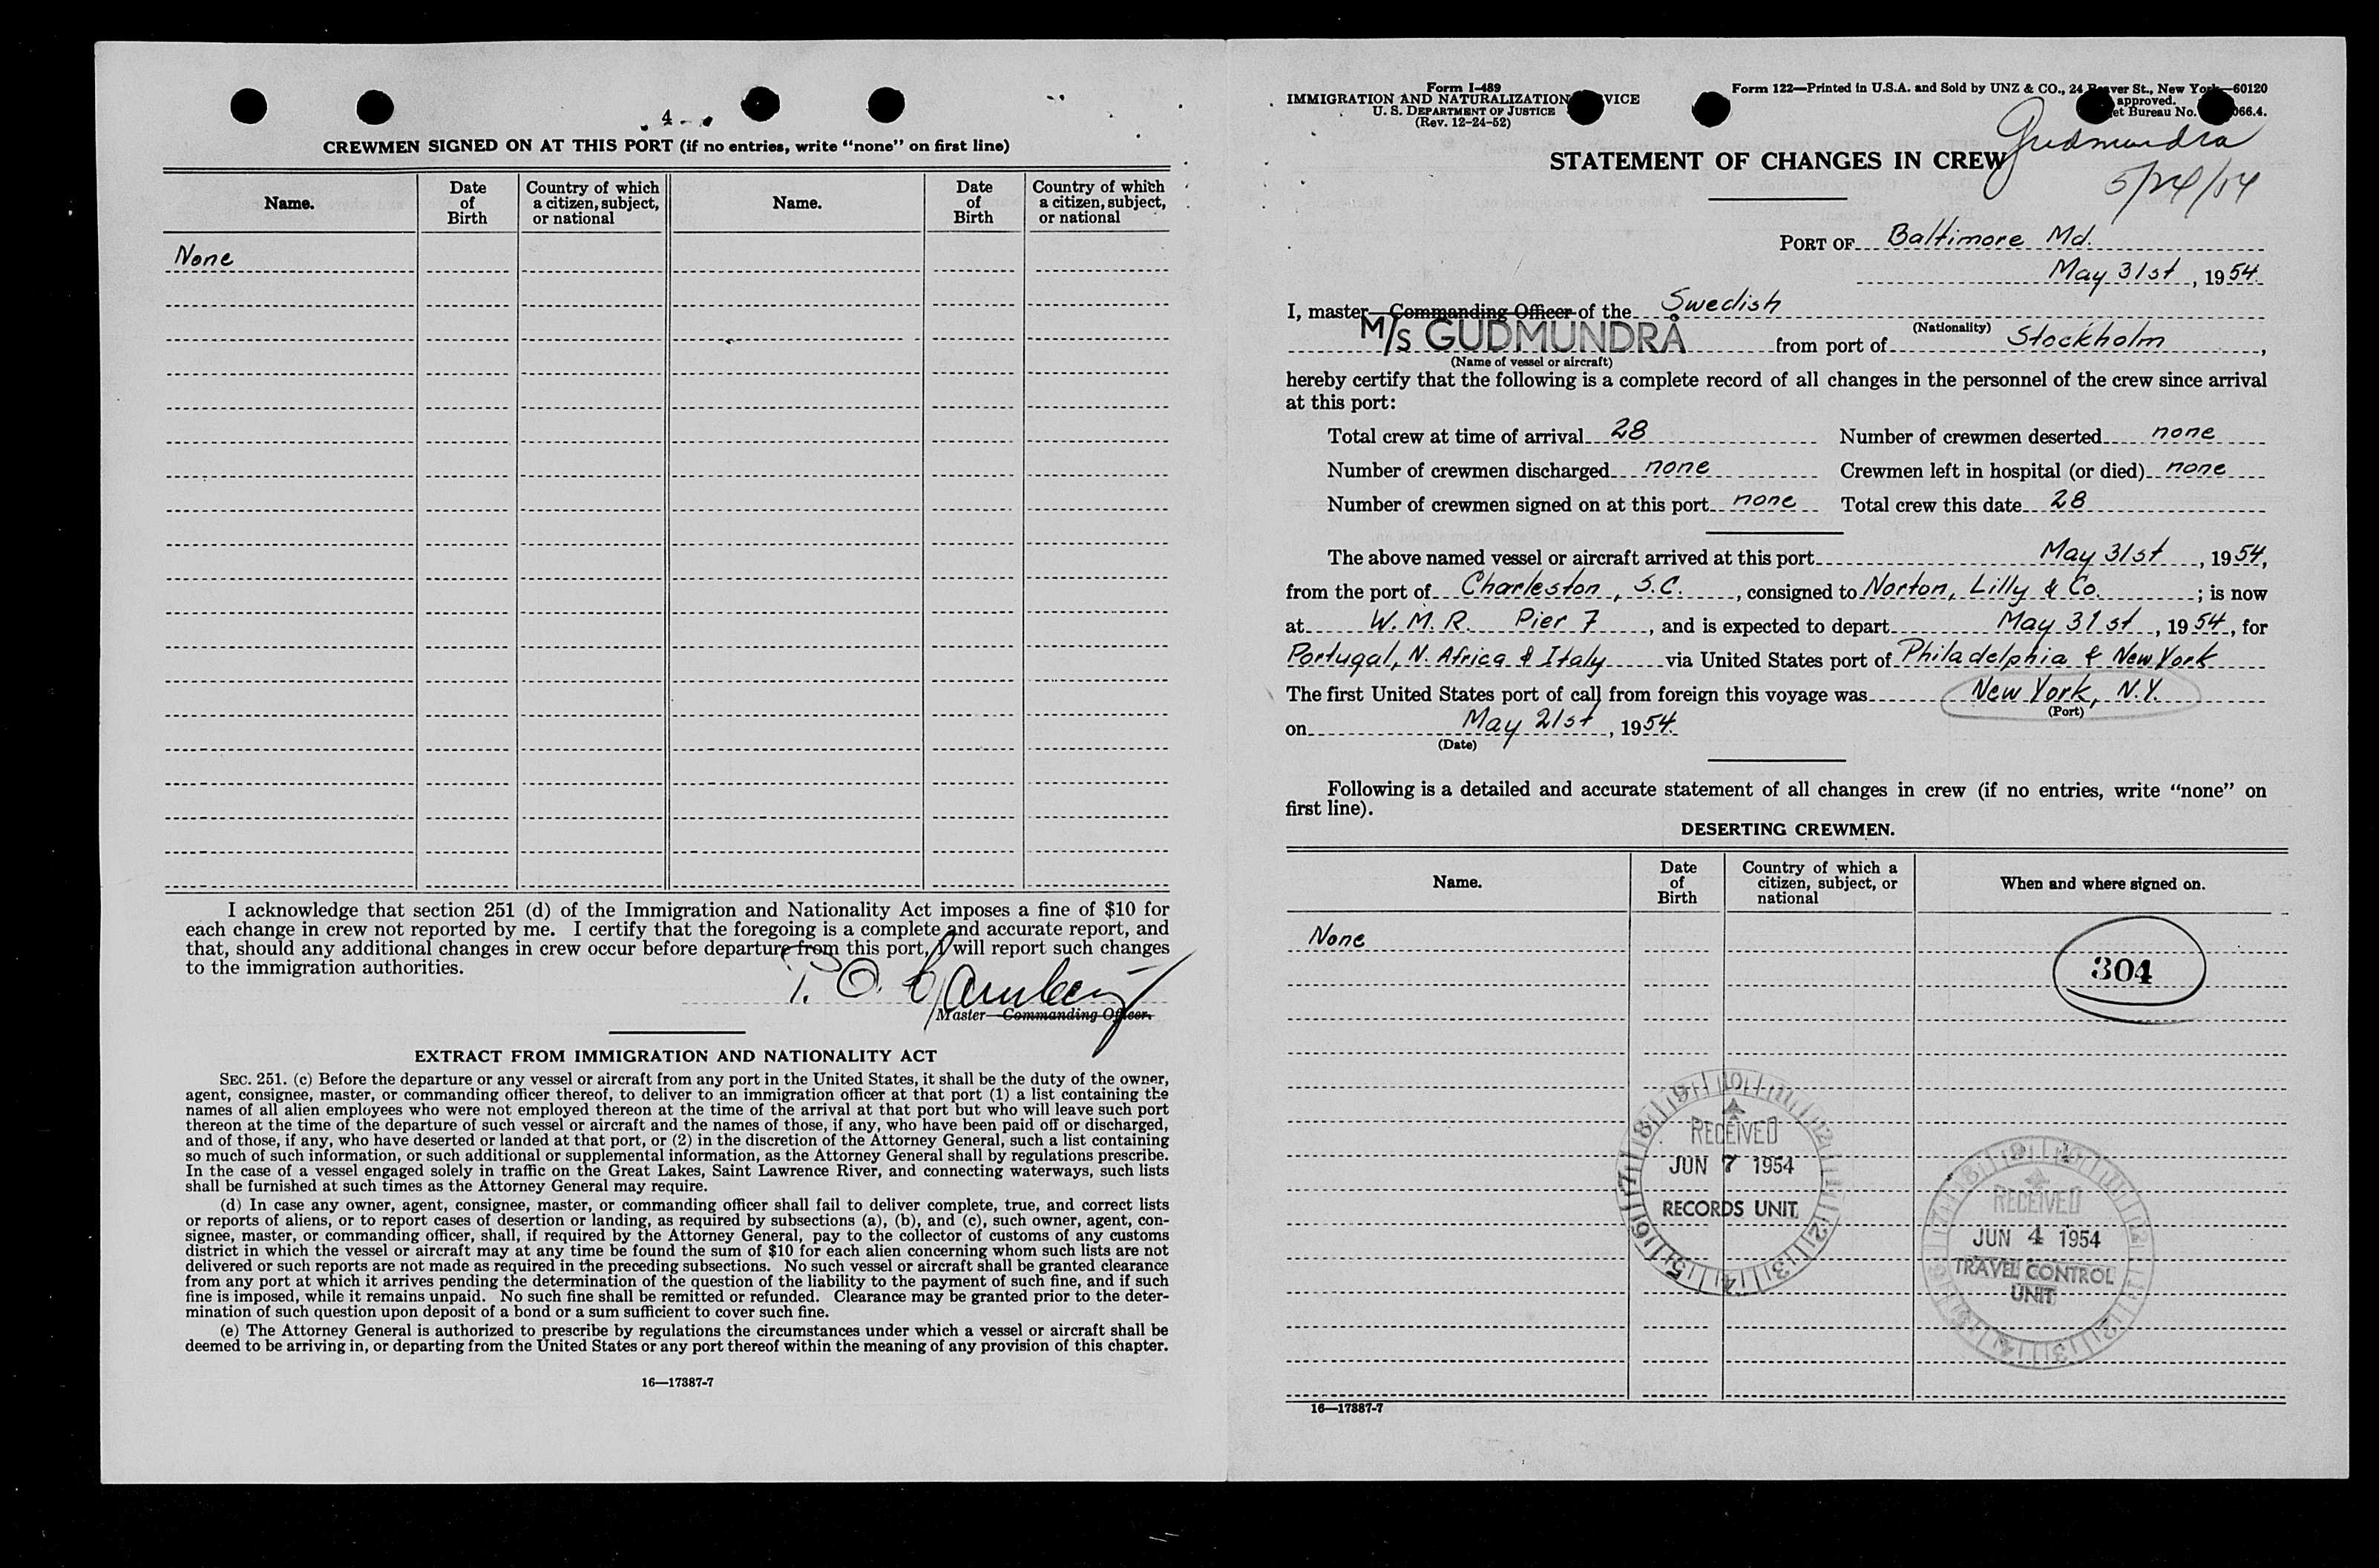 4
CREWMEN SIGNED ON AT THIS PORT (if no entries, write "none" on first line)
Name.
Date of Birth
Country of which a citizen, subject, or national
Name.
Date of Birth
Country of which a citizen, subject, or national
None
I acknowledge that section 251 (d) of the Immigration and Nationality Act imposes a fine of $10 for
each change in crew not reported by me. I certify that the foregoing is a complete and accurate report, and
that, should any additional changes in crew occur before departure from this port, I will report such changes
to the immigration authorities.
Master—Commanding Officer.
EXTRACT FROM IMMIGRATION AND NATIONALITY ACT
SEC. 251. (c) Before the departure or any vessel or aircraft from any port in the United States, it shall be the duty of the owner,
agent, consignee, master, or commanding officer thereof, to deliver to an immigration officer at that port (1) a list containing the
names of all alien employees who were not employed thereon at the time of the arrival at that port but who will leave such port
thereon at the time of the departure of such vessel or aircraft and the names of those, if any, who have been paid off or discharged,
and of those, if any, who have deserted or landed at that port, or (2) in the discretion of the Attorney General, such a list containing
so much of such information, or such additional or supplemental information, as the Attorney General shall by regulations prescribe.
In the case of a vessel engaged solely in traffic on the Great Lakes, Saint Lawrence River, and connecting waterways, such lists
shall be furnished at such times as the Attorney General may require.
(d) In case any owner, agent, consignee, master, or commanding officer shall fail to deliver complete, true, and correct lists
or reports of aliens, or to report cases of desertion or landing, as required by subsections (a), (b), and (c), such owner, agent, con-
signee, master, or commanding officer, shall, if required by the Attorney General, pay to the collector of customs of any customs
district in which the vessel or aircraft may at any time be found the sum of $10 for each alien concerning whom such lists are not
delivered or such reports are not made as required in the preceding subsections. No such vessel or aircraft shall be granted clearance
from any port at which it arrives pending the determination of the question of the liability to the payment of such fine, and if such
fine is imposed, while it remains unpaid. No such fine shall be remitted or refunded. Clearance may be granted prior to the deter-
mination of such question upon deposit of a bond or a sum sufficient to cover such fine.
(e) The Attorney General is authorized to prescribe by regulations the circumstances under which a vessel or aircraft shall be
deemed to be arriving in, or departing from the United States or any port thereof within the meaning of any provision of this chapter.
16—17387-7
Form I-489
IMMIGRATION AND NATURALIZATION VICE
U. S. DEPARTMENT OF JUSTICE
(Rev. 12-24-52)
Form 122—Printed in U.S.A. and Sold by UNZ & CO., 24 Beaver St., New York—60120
approved.
et Bureau No. 066.4.
Gudmundra
5/24/54
STATEMENT OF CHANGES IN CREW
PORT OF Baltimore Md.
May 31st, 1954.
I, master—Commanding Officer of the Swedish
(Nationality)
M/S GUDMUNDRÅ from port of Stockholm,
(Name of vessel or aircraft)
hereby certify that the following is a complete record of all changes in the personnel of the crew since arrival
at this port:
Total crew at time of arrival 28 Number of crewmen deserted none
Number of crewmen discharged none Crewmen left in hospital (or died) none
Number of crewmen signed on at this port none Total crew this date 28
The above named vessel or aircraft arrived at this port May 31st, 1954,
from the port of Charleston, S.C., consigned to Norton, Lilly & Co. ; is now
at W.M.R. Pier 7, and is expected to depart May 31st, 1954, for
Portugal, N. Africa & Italy via United States port of Philadelphia & New York
The first United States port of call from foreign this voyage was New York, N.Y.
(Port)
on May 21st, 1954.
(Date)
Following is a detailed and accurate statement of all changes in crew (if no entries, write "none" on
first line).
DESERTING CREWMEN.
Name.
Date of Birth
Country of which a citizen, subject, or national
When and where signed on.
None
304
RECEIVED
JUN 7 1954
RECORDS UNIT
RECEIVED
JUN 4 1954
TRAVEL CONTROL
UNIT
16—17387-7